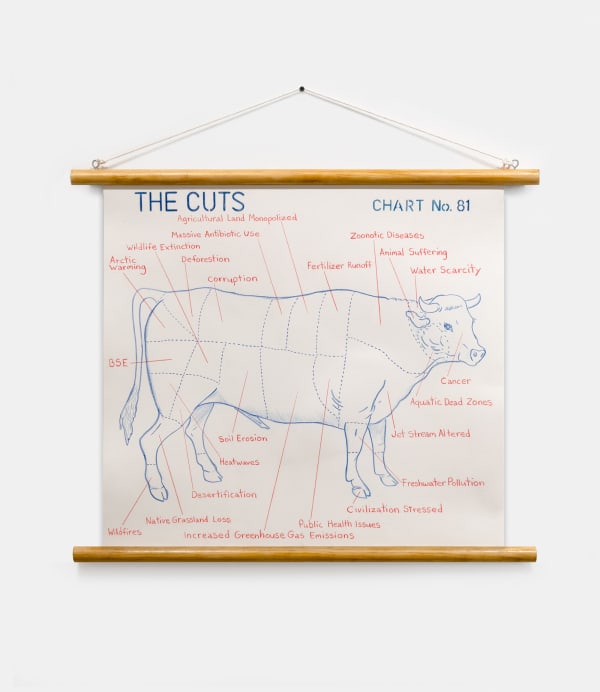 THE CUTS
CHART No. 81
Agricultural Land Monopolized
Massive Antibiotic Use
Zoonotic Diseases
Wildlife Extinction
Animal Suffering
Arctic
Warming
Deforestion
Fertilizer Runoff
Water Scarcity
Corruption
BSE
Cancer
Aquatic Dead Zones
Jet Stream Altered
Soil Erosion
Heatwaves
Freshwater Pollution
Desertification
Civilization Stressed
Native Grassland Loss
Public Health Issues
Wildfires
Increased Greenhouse Gas Emissions